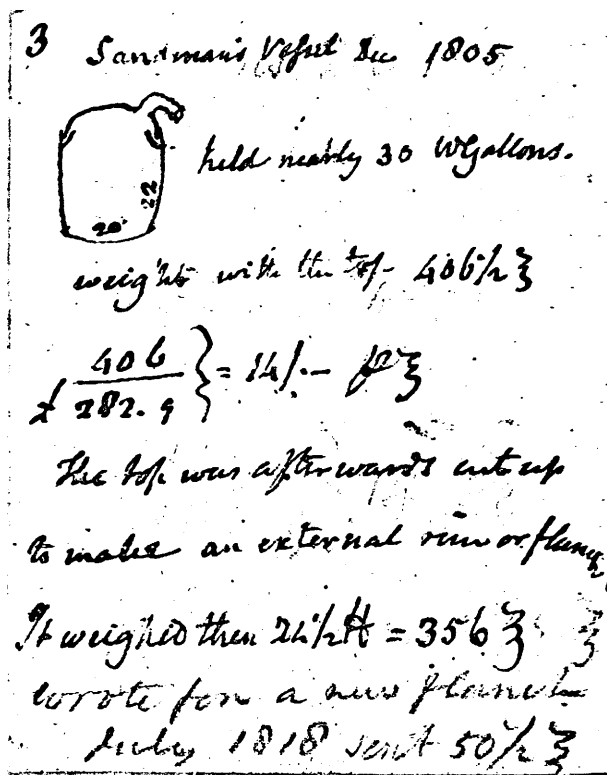 3 Sandman's Vessel Dec 1805
held nearly 30 WGallons.
22
20
weight with the top 406½ ℥
£ 406 / 282.9 } = 14/.- p ℥
The top was afterwards cut up
to make an external rim or flanch
It weighed then 24½ ℔ = 356 ℥
wrote for a new flanch
July 1818 sent 50½ ℥